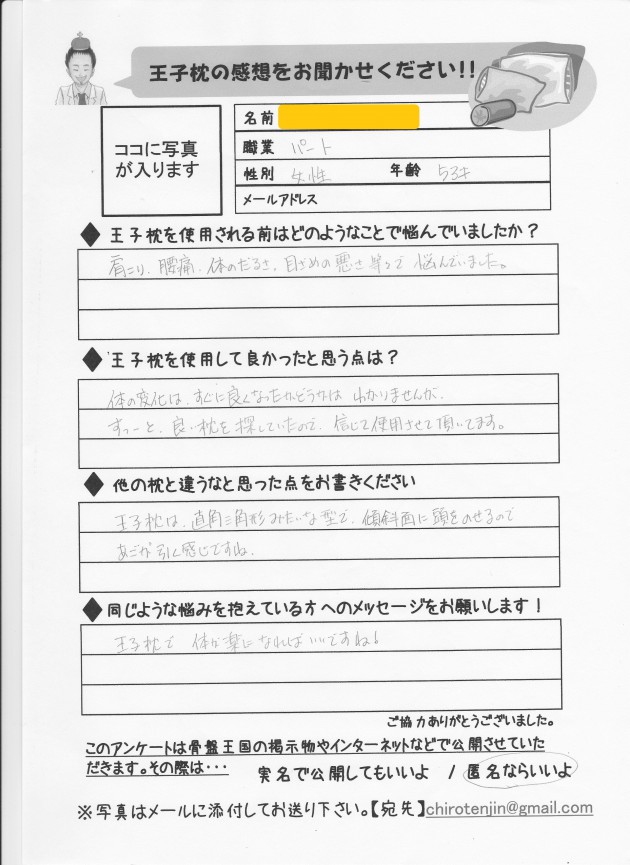 王子枕の感想をお聞かせください!!
ココに写真
が入ります
名前
職業 パート
性別 女性 年齢 53才
メールアドレス
◆ 王子枕を使用される前はどのようなことで悩んでいましたか？
肩こり、腰痛、体のだるさ、目ざめの悪さ等々で悩んでいました。
◆ 王子枕を使用して良かったと思う点は？
体の変化は、すぐに良くなったかどうかは わかりませんが、
ずっーと、良い枕を探していたので、信じて使用させて頂いてます。
◆ 他の枕と違うなと思った点をお書きください
王子枕は、直角三角形みたいな型で、傾斜面に頭をのせるので
あごが引く感じですね、
◆ 同じような悩みを抱えている方へのメッセージをお願いします！
王子枕で 体が楽になればいいですね!
ご協力ありがとうございました。
このアンケートは骨盤王国の掲示物やインターネットなどで公開させていた
だきます。その際は・・・ 実名で公開してもいいよ / 匿名ならいいよ
※写真はメールに添付してお送り下さい。【宛先】chirotenjin@gmail.com